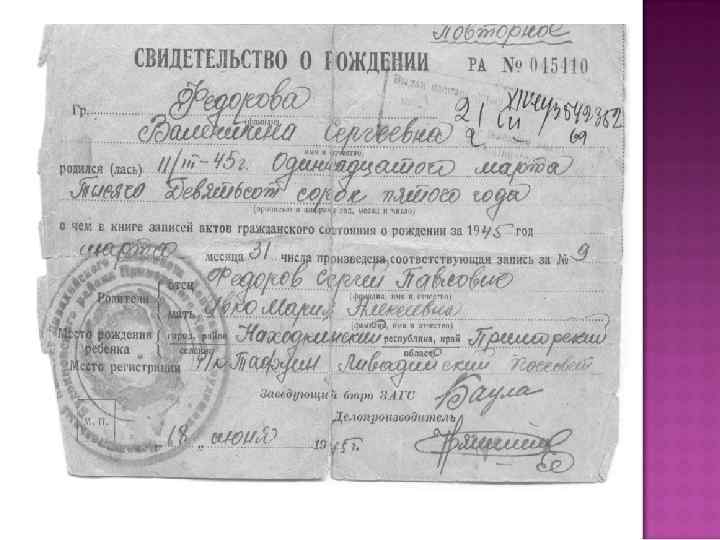 повторное
СВИДЕТЕЛЬСТВО О РОЖДЕНИИ РА № 045410
Гр. Федорова
(фамилия)
Валентина Сергеевна
имя и отчество
родился (лась) 11/III-45г. Одиннадцатого марта
Тысяча Девятьсот сорок пятого года
(прописью и цифрами год, месяц и число)
о чем в книге записей актов гражданского состояния о рождении за 1945 год
марта месяца 31 числа произведена соответствующая запись за № 9
Родители отец Федоров Сергей Павлович
(фамилия, имя и отчество)
мать Мария Алексеевна
(фамилия, имя и отчество)
Место рождения ребенка город, район селение Находкинский республика, край область Приморский
Место регистрации Ливадийский поссовет
Заведующий бюро ЗАГС
Делопроизводитель
М. П. 18 „ июня 19 45г.